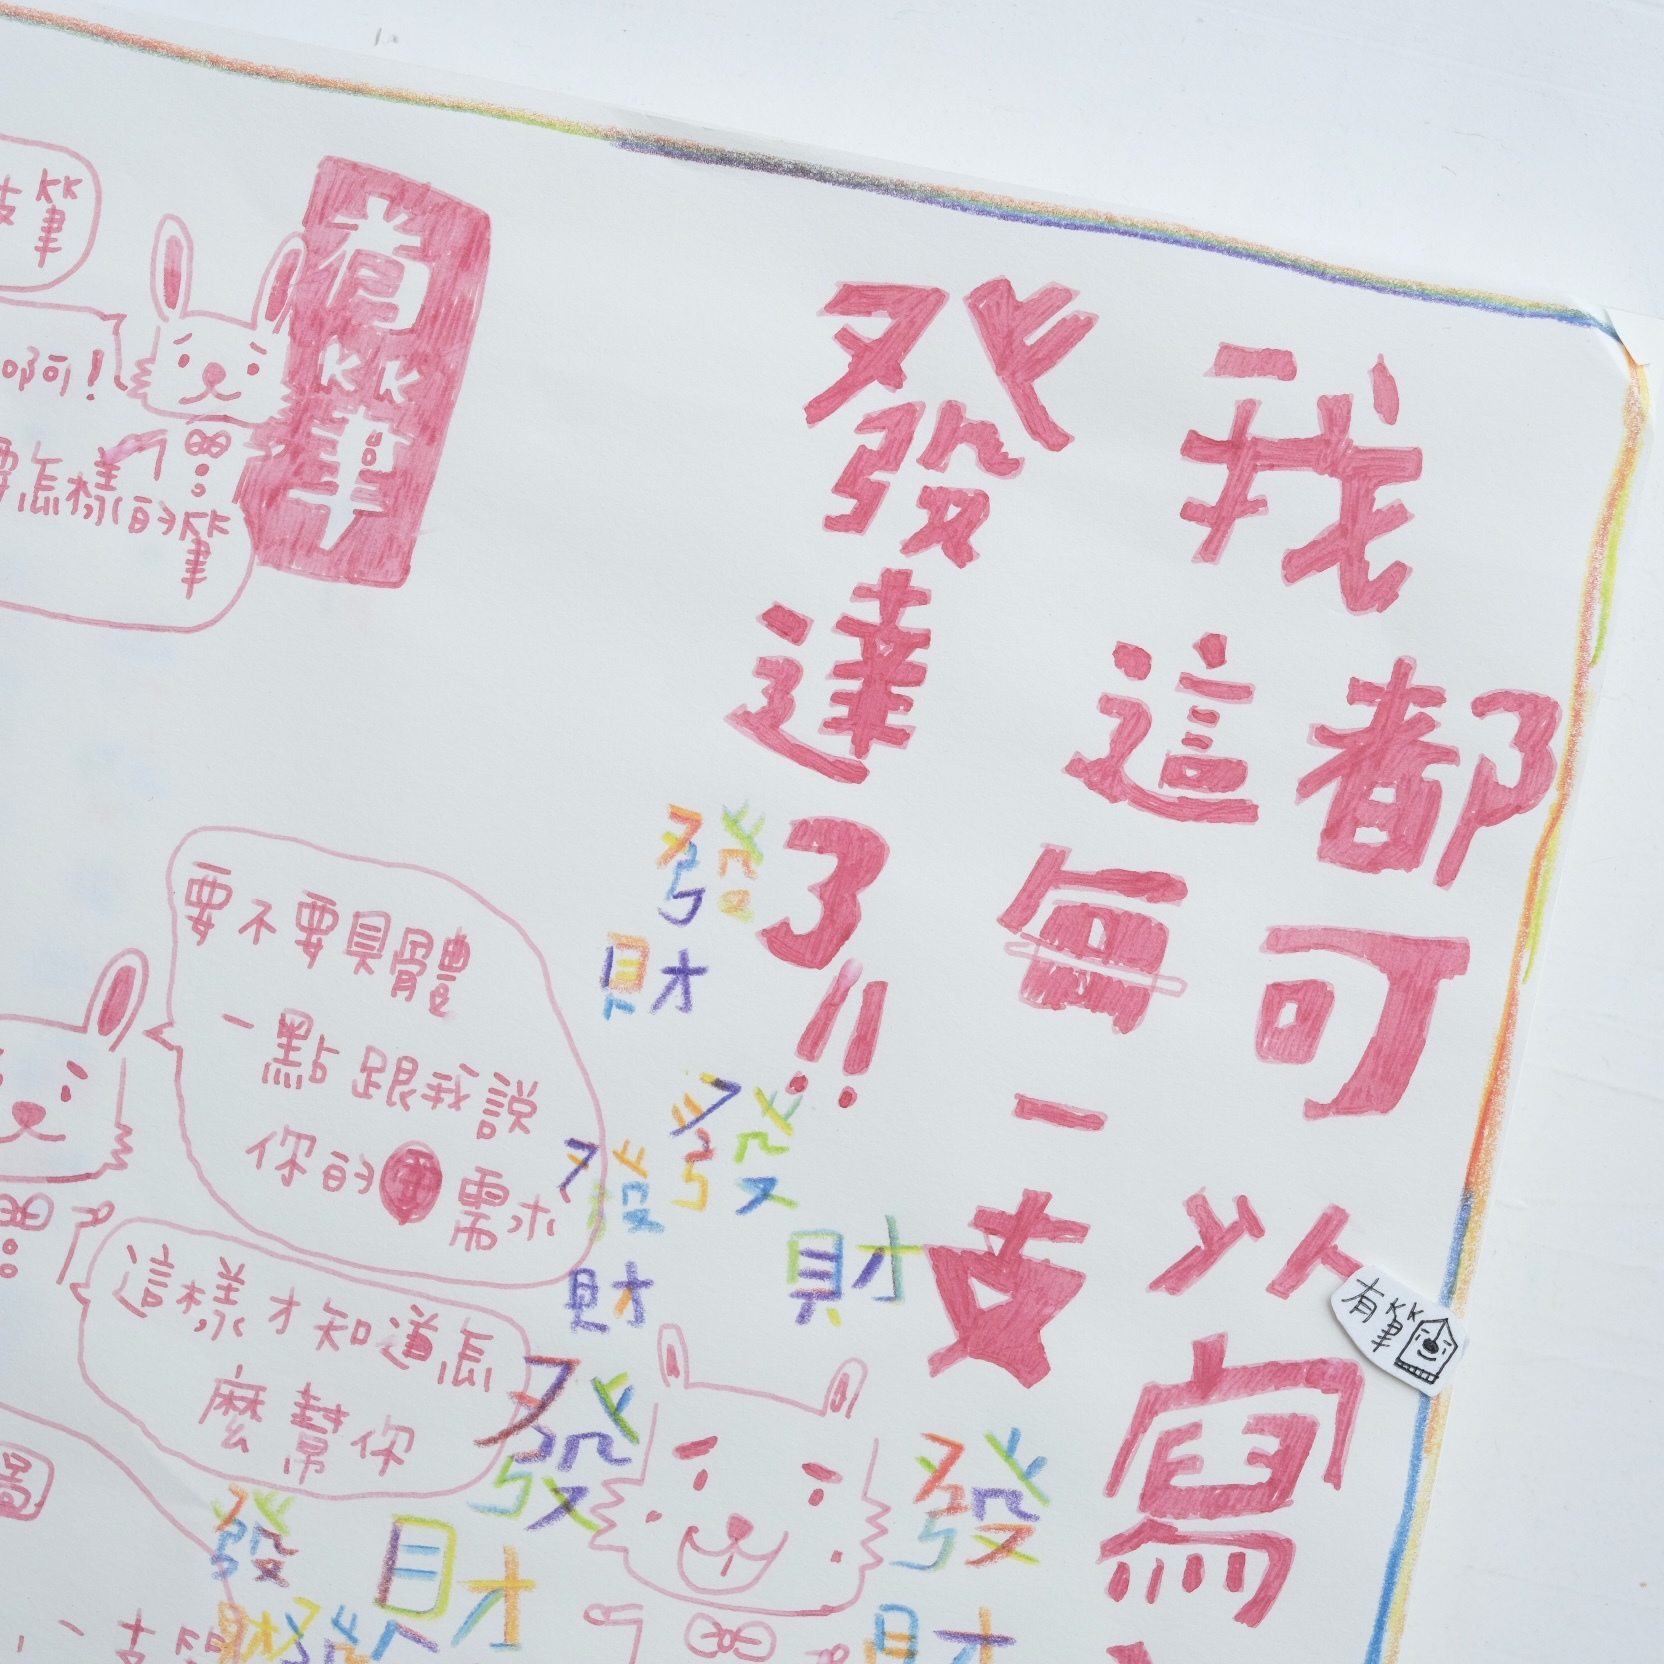 我都可以寫
這每一支
發達了!!
有筆
有筆
筆
啊!
怎樣的筆
要不要具體
一點跟我說
你的需求
這樣才知道怎
麼幫你
發財
發財
發財
發財
發財
發財